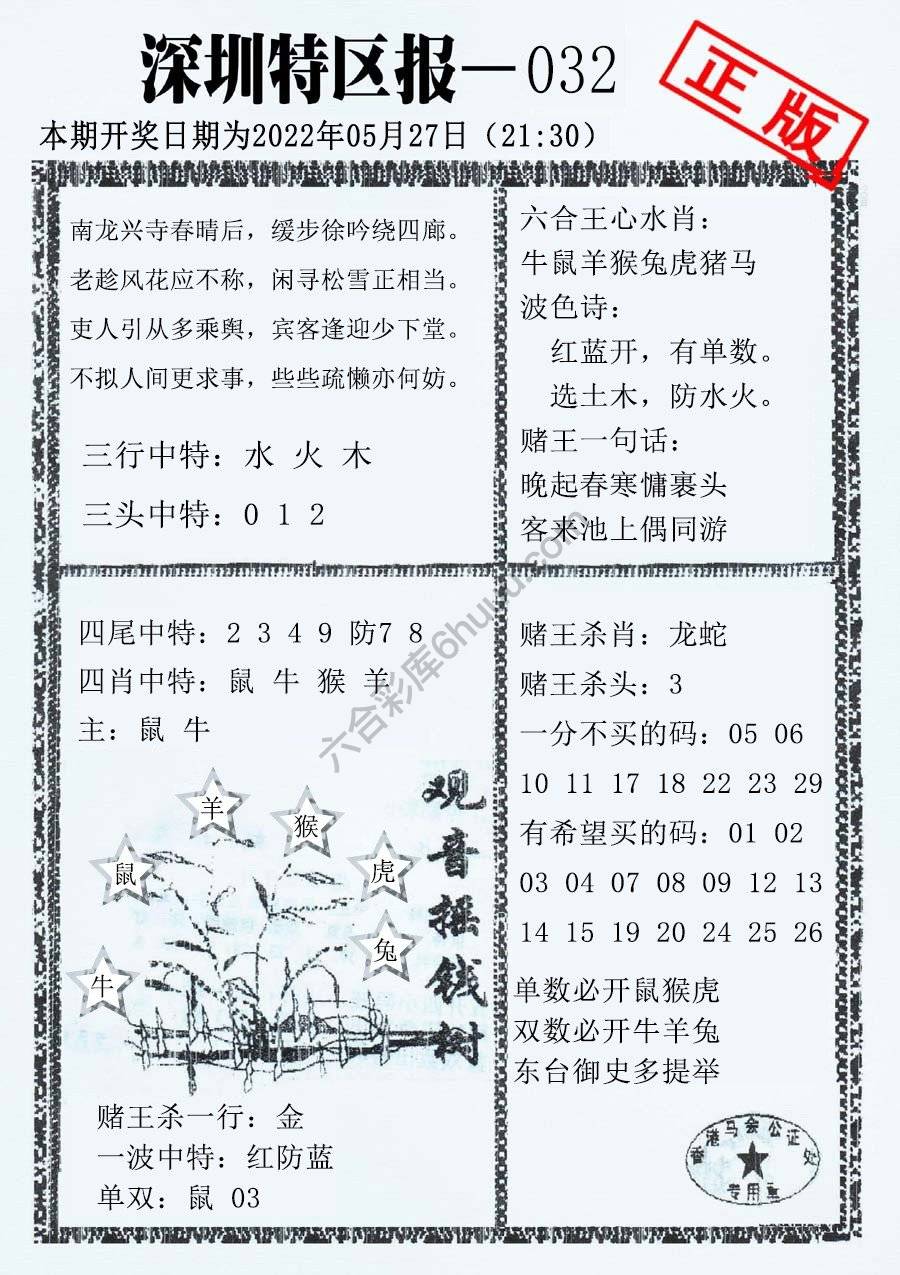 深圳特区报—032
正版
本期开奖日期为2022年05月27日（21:30）
南龙兴寺春晴后，缓步徐吟绕四廊。
老趁风花应不称，闲寻松雪正相当。
吏人引从多乘舆，宾客逢迎少下堂。
不拟人间更求事，些些疏懒亦何妨。
三行中特：水 火 木
三头中特：0 1 2
六合王心水肖：
牛鼠羊猴兔虎猪马
波色诗：
红蓝开，有单数。
选土木，防水火。
赌王一句话：
晚起春寒慵裹头
客来池上偶同游
四尾中特：2 3 4 9 防7 8
四肖中特：鼠 牛 猴 羊
主：鼠 牛
羊
猴
鼠
虎
兔
牛
观音摇钱树
赌王杀一行：金
一波中特：红防蓝
单双：鼠 03
赌王杀肖：龙蛇
赌王杀头：3
一分不买的码：05 06
10 11 17 18 22 23 29
有希望买的码：01 02
03 04 07 08 09 12 13
14 15 19 20 24 25 26
单数必开鼠猴虎
双数必开牛羊兔
东台御史多提举
香港马会公证处
专用章
六合彩库6huuu.com